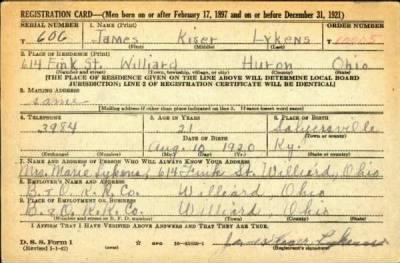 REGISTRATION CARD—(Men born on or after February 17, 1897 and on or before December 31, 1921)
SERIAL NUMBER 1. NAME (Print) ORDER NUMBER
606 James Kiser Lykens
(First) (Middle) (Last)
2. PLACE OF RESIDENCE (Print)
614 Fink St. Williard Huron Ohio
(Number and street) (Town, township, village, or city) (County) (State)
[THE PLACE OF RESIDENCE GIVEN ON THE LINE ABOVE WILL DETERMINE LOCAL BOARD
JURISDICTION; LINE 2 OF REGISTRATION CERTIFICATE WILL BE IDENTICAL]
3. MAILING ADDRESS
same
[Mailing address if other than place indicated on line 2. If same insert word same]
4. TELEPHONE 5. AGE IN YEARS 6. PLACE OF BIRTH
3984 21 Salyersville
DATE OF BIRTH (Town or county)
Aug. 10 1920 Ky.
(Exchange) (Number) (Mo.) (Day) (Yr.) (State or country)
7. NAME AND ADDRESS OF PERSON WHO WILL ALWAYS KNOW YOUR ADDRESS
Mrs. Marie Lykens, 614 Fink St. Williard, Ohio
8. EMPLOYER'S NAME AND ADDRESS
B & O. R.R. Co. Williard, Ohio
9. PLACE OF EMPLOYMENT OR BUSINESS
B & O. R.R. Co. Williard, Ohio
(Number and street or R. F. D. number) (Town) (County) (State)
I AFFIRM THAT I HAVE VERIFIED ABOVE ANSWERS AND THAT THEY ARE TRUE.
D. S. S. Form 1
(Revised 1-1-42) (over) GPO James Kiser Lykens
(Registrant's signature)